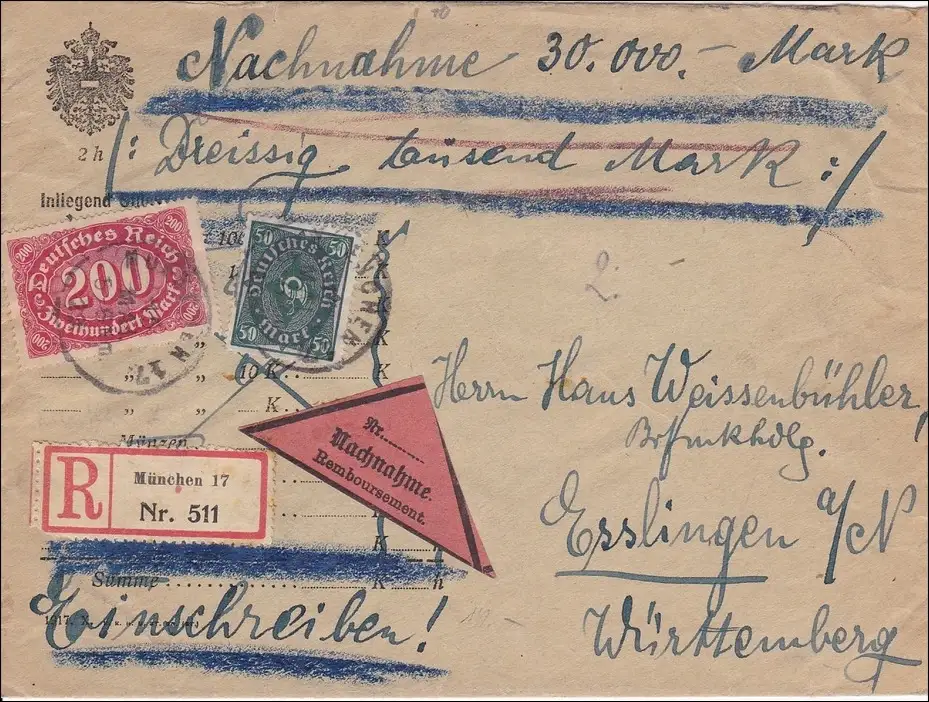 Nachnahme 30.000.- Mark
2 h
/: Dreissig tausend Mark :/
Inliegend
200 200
Deutsches Reich
200
Zweihundert Mark
200 200
50 50
Deutsches Reich
Mark
50 50
K
K
„ „ 10 K
K
„ „ K
Münzen
R
München 17
Nr. 511
Nr.
Nachnahme.
Remboursement.
Herrn Hans Weissenbühler,
Brfmkhdlg.
Esslingen a/N
Württemberg
K h
Summe K h
1917.
Einschreiben!